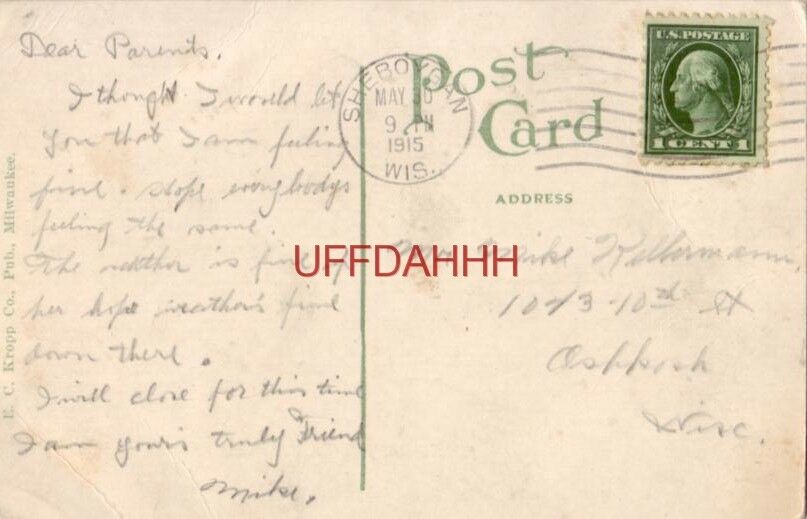 Dear Parents,
I thought I would let
you that I am feeling
fine. Hope everybodys
feeling the same.
The weather is fine up
her hope weather's fine
down there.
I will close for this time
I am yours truly Friend
Mike,
E. C. Kropp Co., Pub., Milwaukee.
Post
Card
SHEBOYGAN
MAY 30
9 PM
1915
WIS.
U.S. POSTAGE
1 CENT 1
ADDRESS
UFFDAHHH
Mike Kellermann,
10th St
Oshkosh
Wisc.